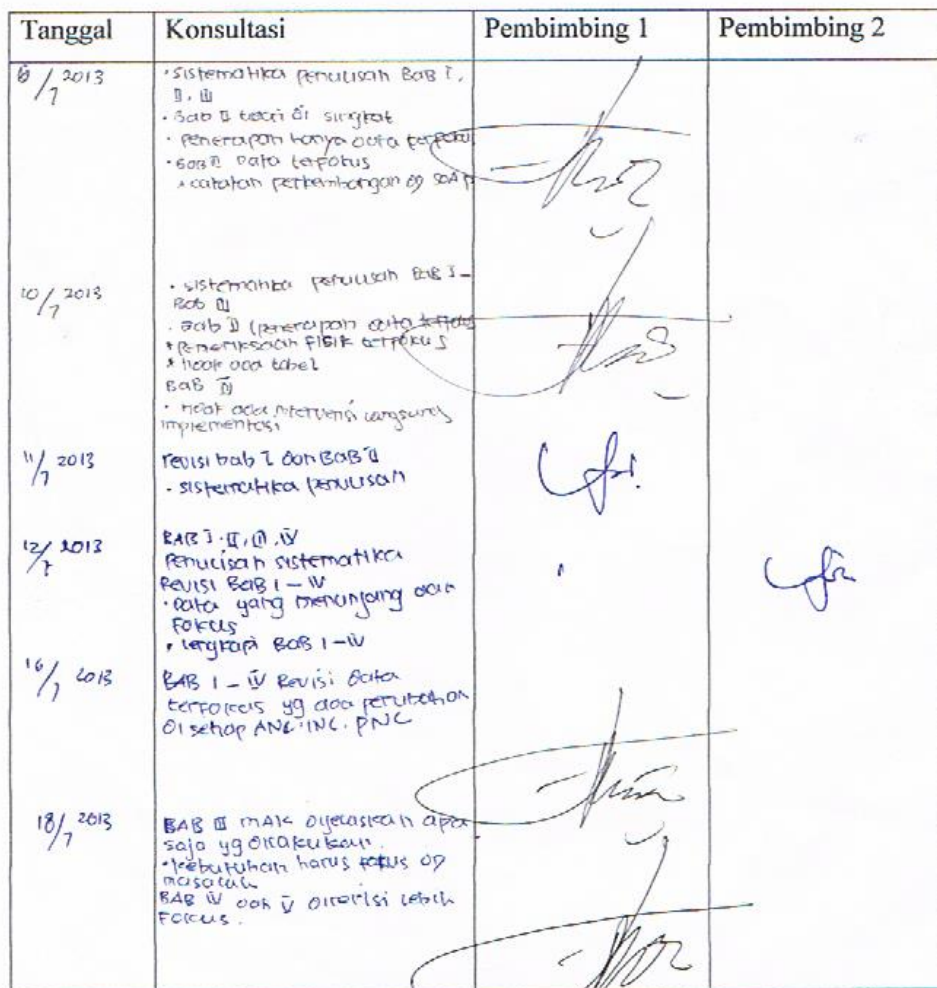 Tanggal Konsultasi Pembimbing 1 Pembimbing 2
/7 2013
· Sistematika penulisan BAB I,
II, III
· Bab II teori di singkat
· Penerapan hanya data terfokus
· BAB II Data terfokus
· catatan perkembangan dg SOAP
10/7 2013
· sistematika penulisan BAB I -
Bab III
· Bab II (penerapan data terfokus
* Pemeriksaan FISIK terfokus
* tidak ada tabel
BAB
· tidak ada intervensi langsung
implementasi
11/7 2013
revisi bab I dan BAB II
· sistematika penulisan
12/7 2013
BAB I, II, III, IV
Penulisan sistematika
Revisi BAB I - IV
· Data yang menunjang dan
FOKUS
· lengkapi BAB I - IV
16/7 2013
BAB I - IV Revisi Data
terfokus yg ada perubahan
di setiap ANC. INC. PNC
18/7 2013
BAB III dijelaskan apa
saja yg dilakukan.
· kebutuhan harus fokus dg
masalah
BAB IV dan V direvisi lebih
FOKUS.